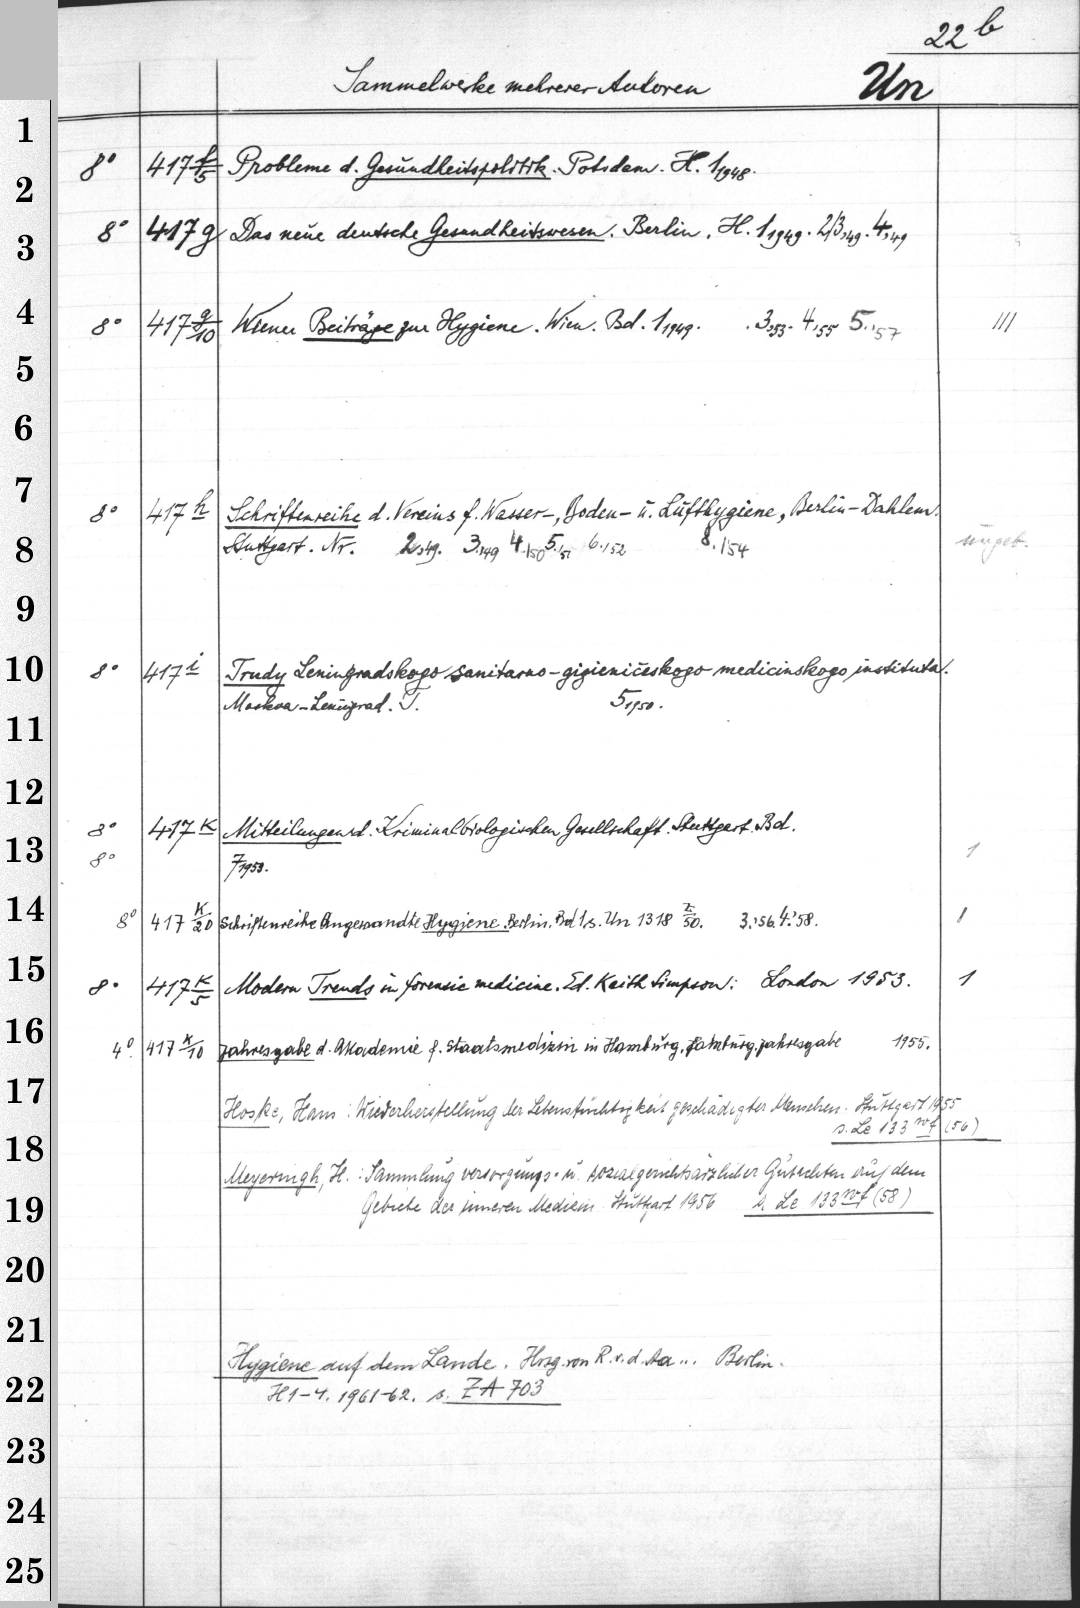 22 b
Sammelwerke mehrerer Autoren Un
1
8° 417 f/5 Probleme d. Gesundheitspolitik. Potsdam. H. 1 1948.
2
8° 417 g Das neue deutsche Gesundheitswesen. Berlin. H. 1 1949. 2/3,49. 4,49
3
4
8° 417 g/10 Wiener Beiträge zur Hygiene. Wien. Bd. 1 1949. . 3,53. 4,55 5.,57 III
5
6
7
8° 417 h Schriftenreihe d. Vereins f. Wasser-, Boden- u. Lufthygiene, Berlin-Dahlem.
8
Stuttgart. Nr. 2,49. 3,49 4./50 5./51 6./52 8./54 ungeb.
9
10
8° 417 i Trudy Leningradskogo sanitarno-gigieničeskogo medicinskogo instituta.
Moskva-Leningrad. T. 5 1950.
11
12
8° 417 k Mitteilungen d. Kriminalbiologischen Gesellschaft. Stuttgart. Bd.
13
8° 7 1953. 1
14
8° 417 k/20 Schriftenreihe Angewandte Hygiene. Berlin. Bd 1 s. Un 1318 z/50. 3.'56. 4.'58. 1
15
8° 417 k/5 Modern Trends in forensic medicine. Ed. Keith Simpson: London 1953. 1
16
4° 417 k/10 Jahresgabe d. Akademie f. Staatsmedizin in Hamburg. Hamburg. Jahresgabe 1955.
17
Hoske, Hans: Wiederherstellung der Lebenstüchtigkeit geschädigter Menschen. Stuttgart 1955
s. Le 133 wf (56)
18
Meyeringh, H.: Sammlung versorgungs- u. sozialgerichtsärztlicher Gutachten auf dem
19
Gebiete der inneren Medizin. Stuttgart 1956 s. Le 133 wf (58)
20
21
Hygiene auf dem Lande. Hrsg. von R. v. d. Aa ... Berlin.
22
H 1-4. 1961-62. s. ZA 703
23
24
25